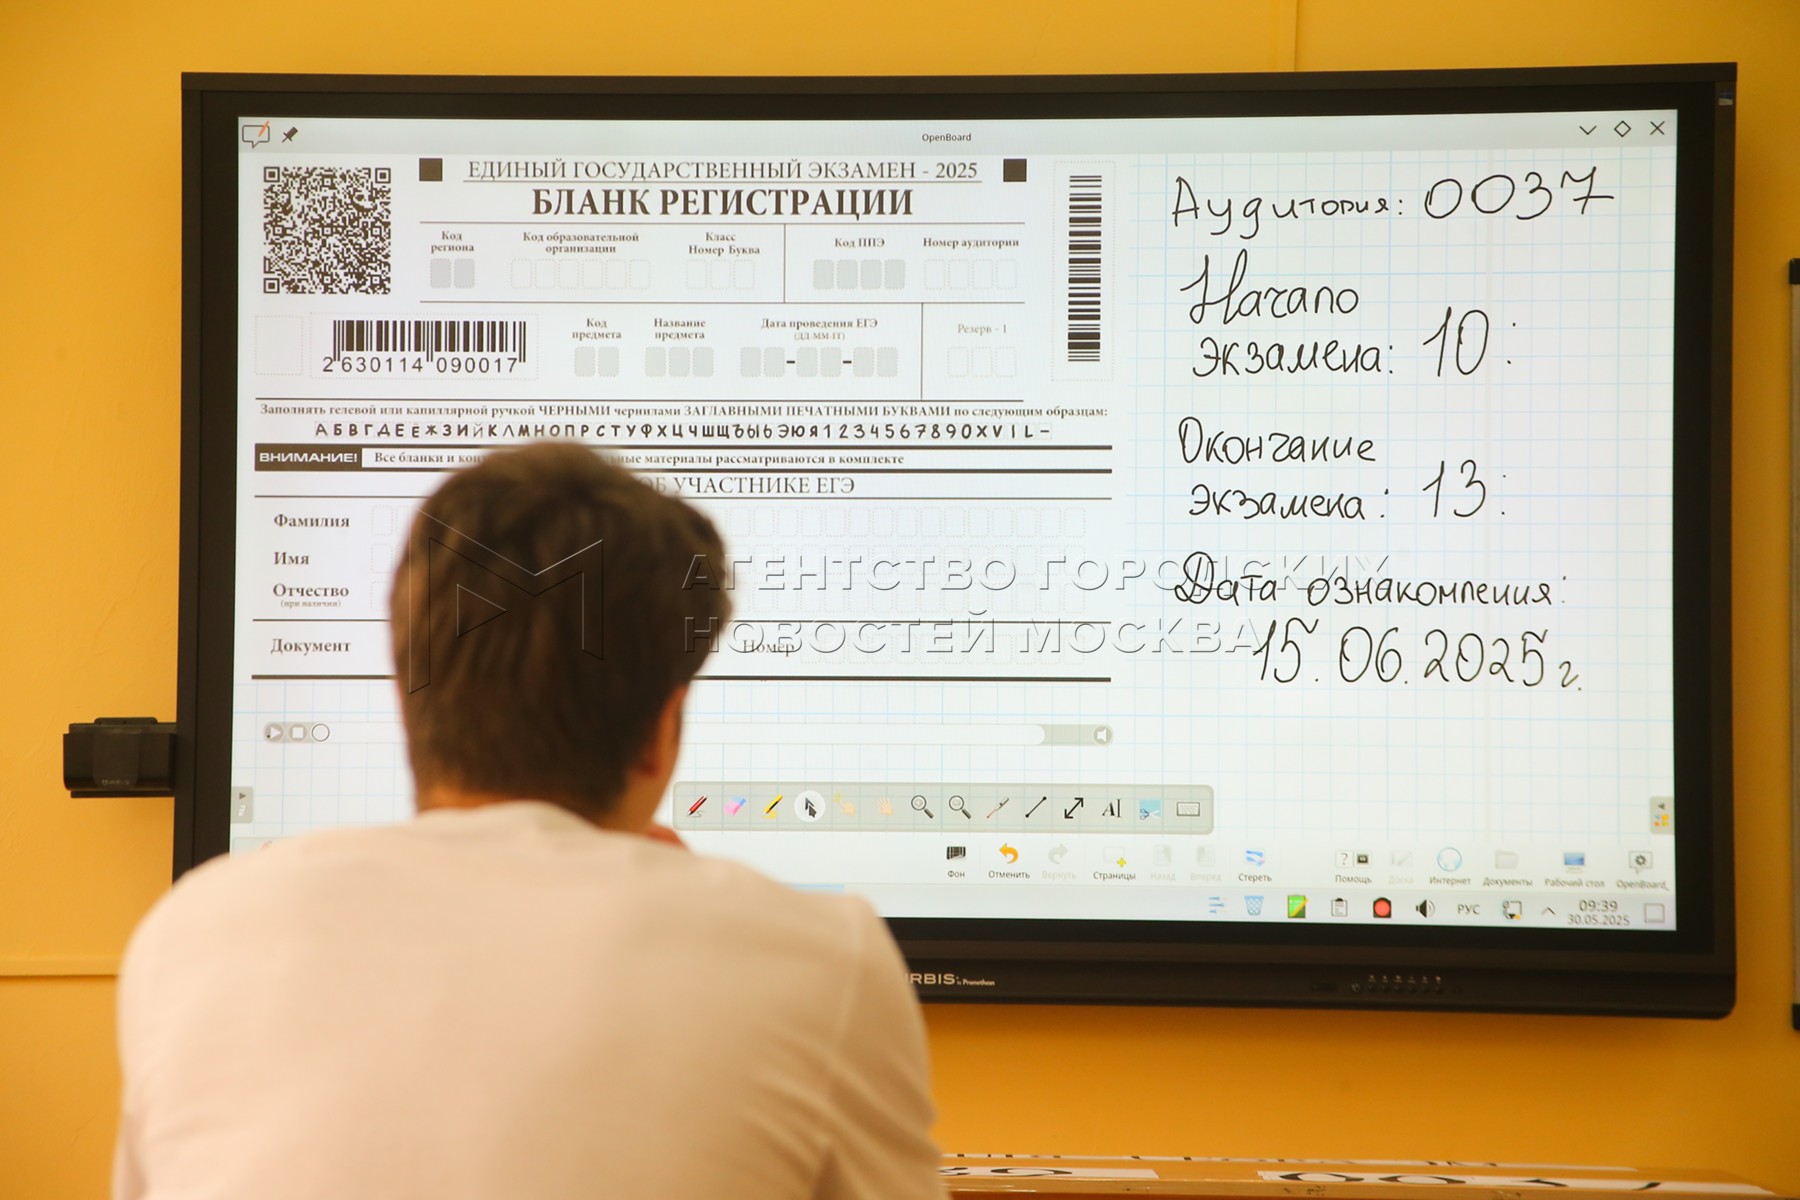 OpenBoard
ЕДИНЫЙ ГОСУДАРСТВЕННЫЙ ЭКЗАМЕН - 2025
БЛАНК РЕГИСТРАЦИИ
Код региона
Код образовательной организации
Класс Номер Буква
Код ППЭ
Номер аудитории
2 630114 090017
Код предмета
Название предмета
Дата проведения ЕГЭ
(ДД-ММ-ГГ)
Резерв - 1
Заполнять гелевой или капиллярной ручкой ЧЕРНЫМИ чернилами ЗАГЛАВНЫМИ ПЕЧАТНЫМИ БУКВАМИ по следующим образцам:
АБВГДЕЁЖЗИЙКЛМНОПРСТУФХЦЧШЩЪЫЬЭЮЯ1234567890XVIL-
ВНИМАНИЕ! Все бланки и материалы рассматриваются в комплекте
ОБ УЧАСТНИКЕ ЕГЭ
Фамилия
Имя
Отчество
(при наличии)
Документ
Номер
Аудитория: 0037
Начало
экзамена: 10:
Окончание
экзамена: 13:
Дата ознакомления:
15.06.2025г.
АГЕНТСТВО ГОРОДСКИХ
НОВОСТЕЙ МОСКВА
AI
Фон Отменить Вернуть Страницы Назад Вперед Стереть Помощь Доска Интернет Документы Рабочий стол OpenBoard
РУС 09:39
30.05.2025
by Promethean